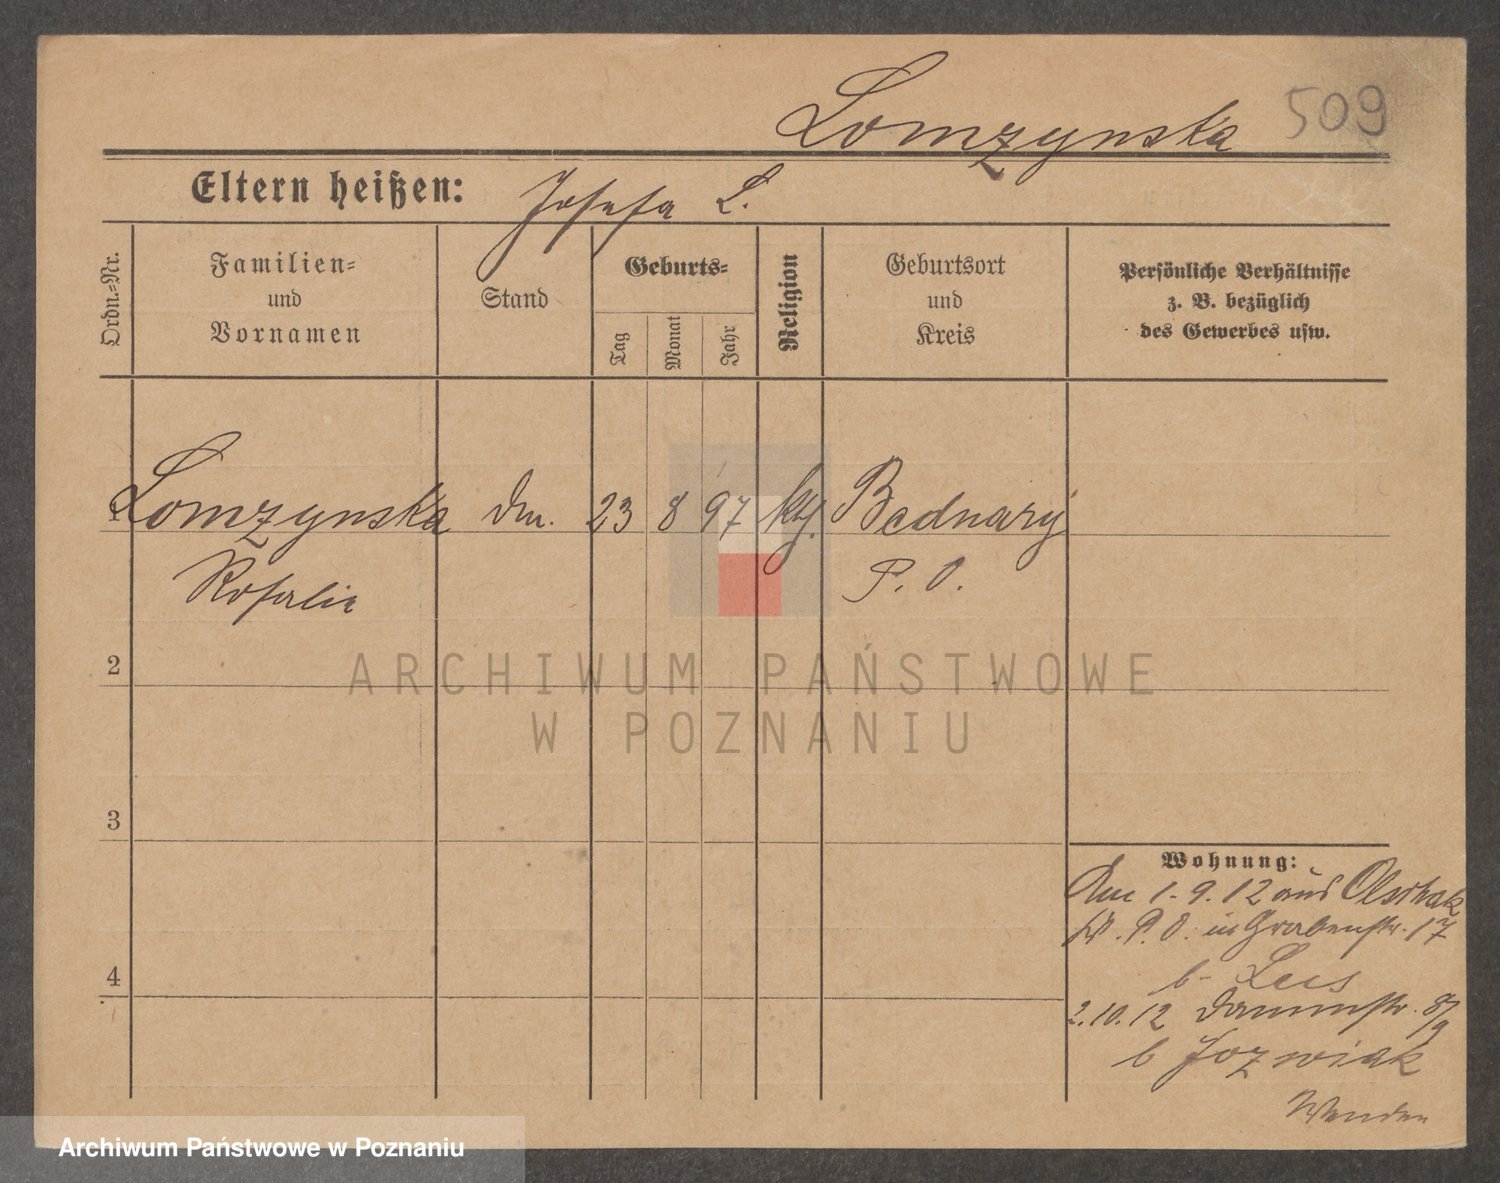 Lomzynska 509
Eltern heißen: Josefa L.
Ordn.-Nr.
Familien-
und
Vornamen
Stand
Geburts-
Tag
Monat
Jahr
Religion
Geburtsort
und
Kreis
Persönliche Verhältnisse
z. B. bezüglich
des Gewerbes usw.
1 Lomzynska Dm. 23 8 97 kth. Bednary
Rosalie P. O.
2
3
4
Wohnung:
Am 1.9.12 aus
P. O. in Grabenstr. 17
b. Leis
2.10.12 Dammstr. 8/9
b Jozwiak
Wenden
ARCHIWUM PAŃSTWOWE
W POZNANIU
Archiwum Państwowe w Poznaniu